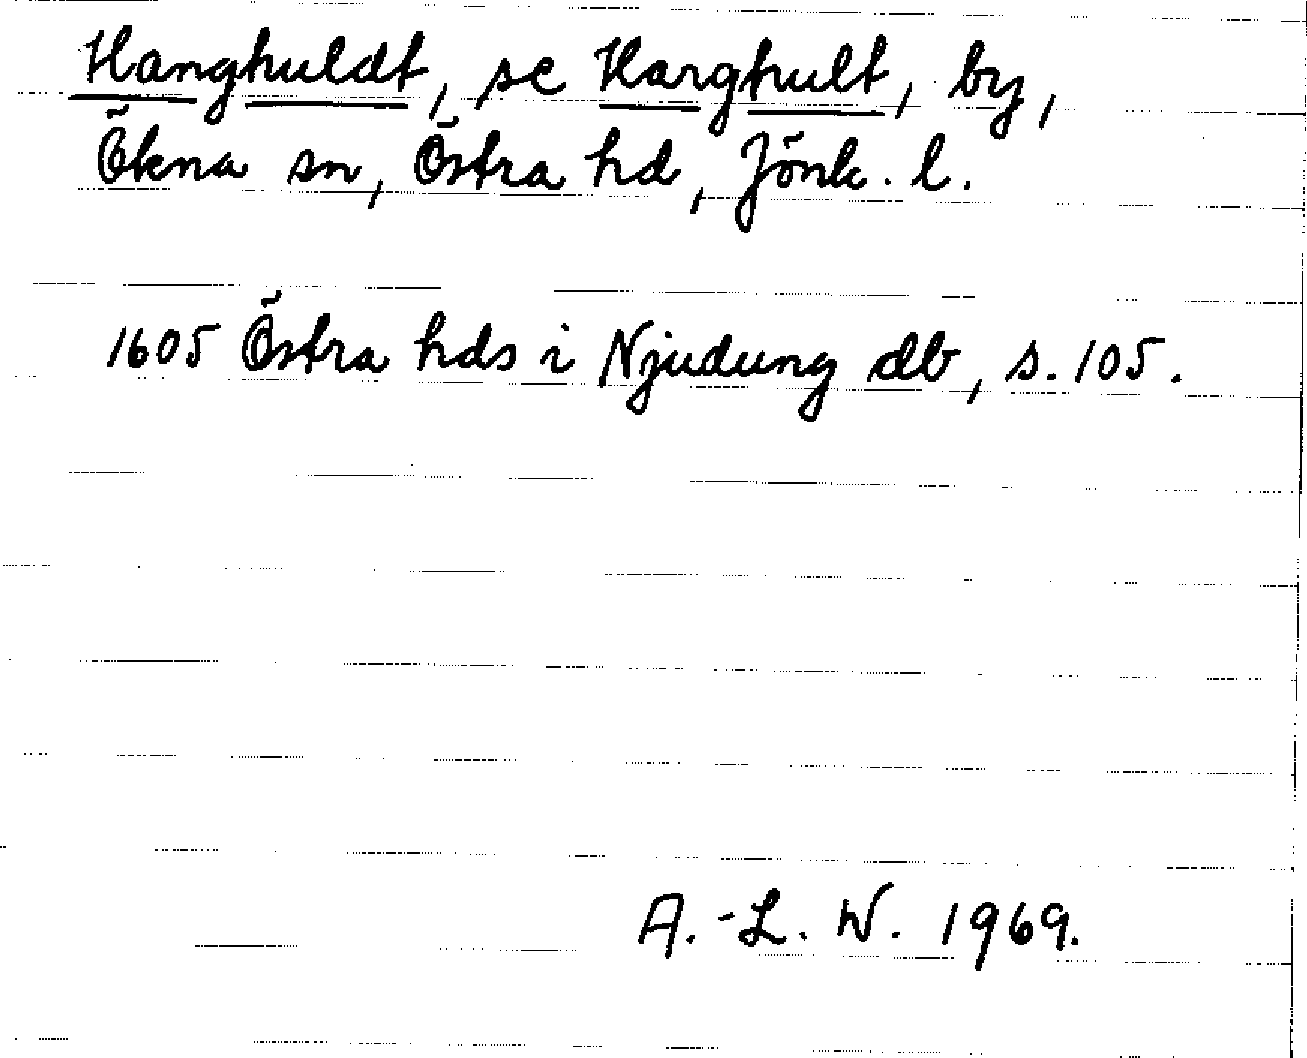 Hanghuldt, se Harghult, by,
Ökna sn, Östra hd, Jönk. l.
1605 Östra hds i Njudung db, s. 105.
A.-L. W. 1969.